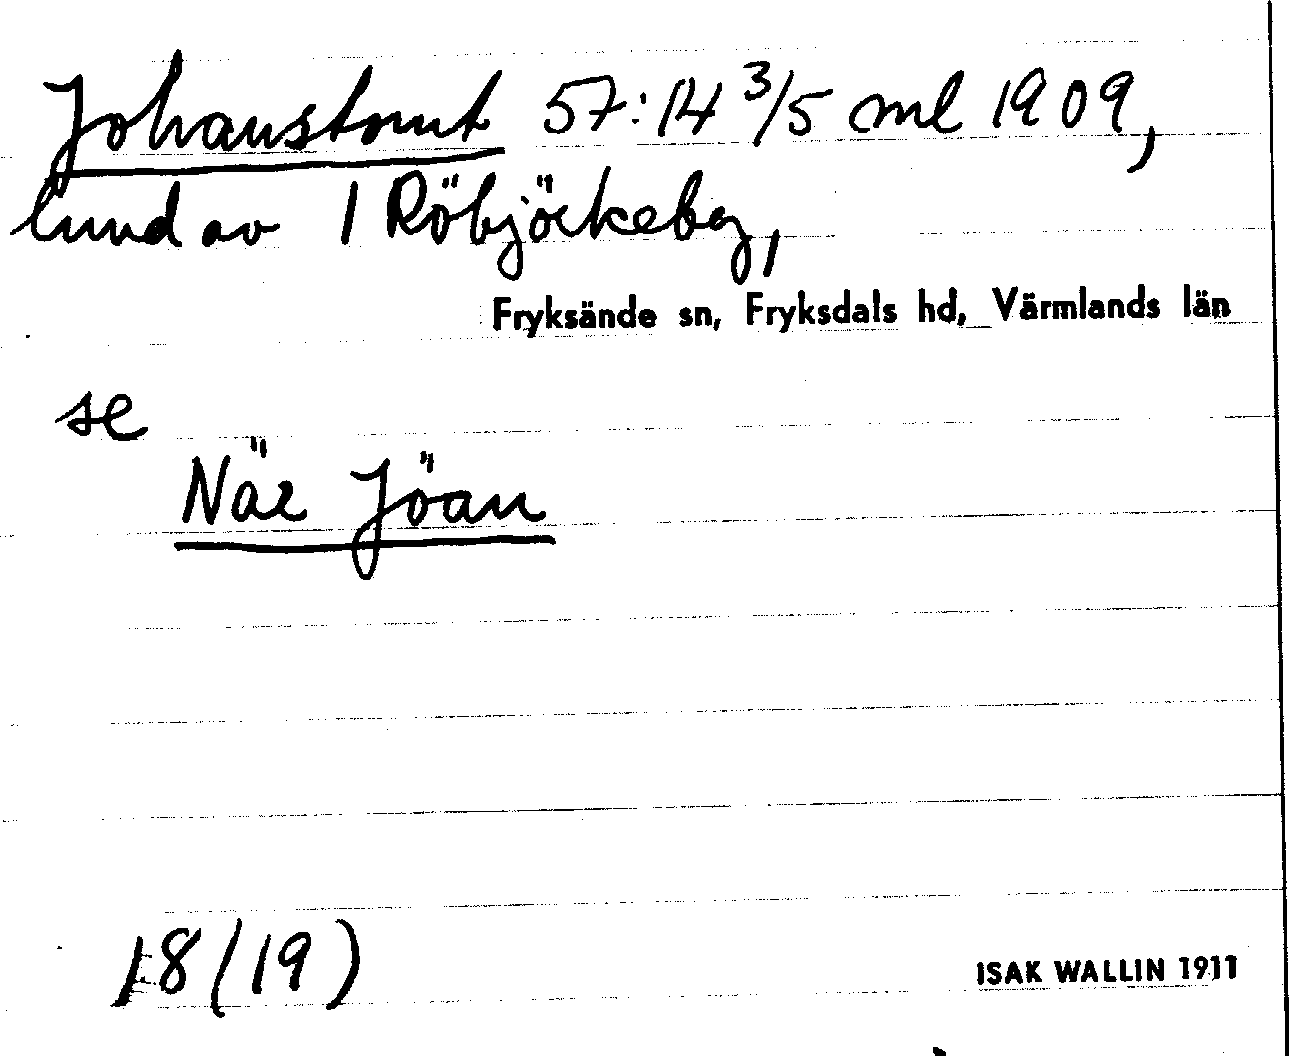 Johanstomt 57:14 3/5 ml 1909,
lund av 1 Röbjörkeby,
Fryksände sn, Fryksdals hd, Värmlands län
se
När Jöan
18 (19)
ISAK WALLIN 1911